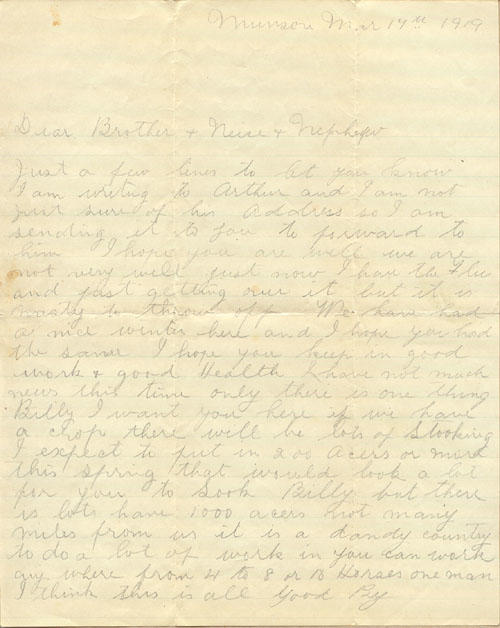 Munson Mar 17th 1919
Dear Brother + Neise + Nephew
Just a few lines to let you know
I am writing to Arthur and I am not
just sure of his Address so I am
sending it to you to forward to
him I hope you are well we are
not very well just now I have the Flu
and just getting over it but it is
nasty to throw off We have had
a nice winter here and I hope you had
the same I hope you keep in good
work & good Health I have not much
news this time only there is one thing
Billy I want you here if we have
a crop there will be lots of Stooking
I expect to put in 200 acers or more
this spring that would look a lot
for you to Sook Billy but there
is lots have 1000 acers not many
miles from us it is a dandy country
to do a lot of work in you can work
any where from 4 to 8 or Horses one man
I think this is all Good By